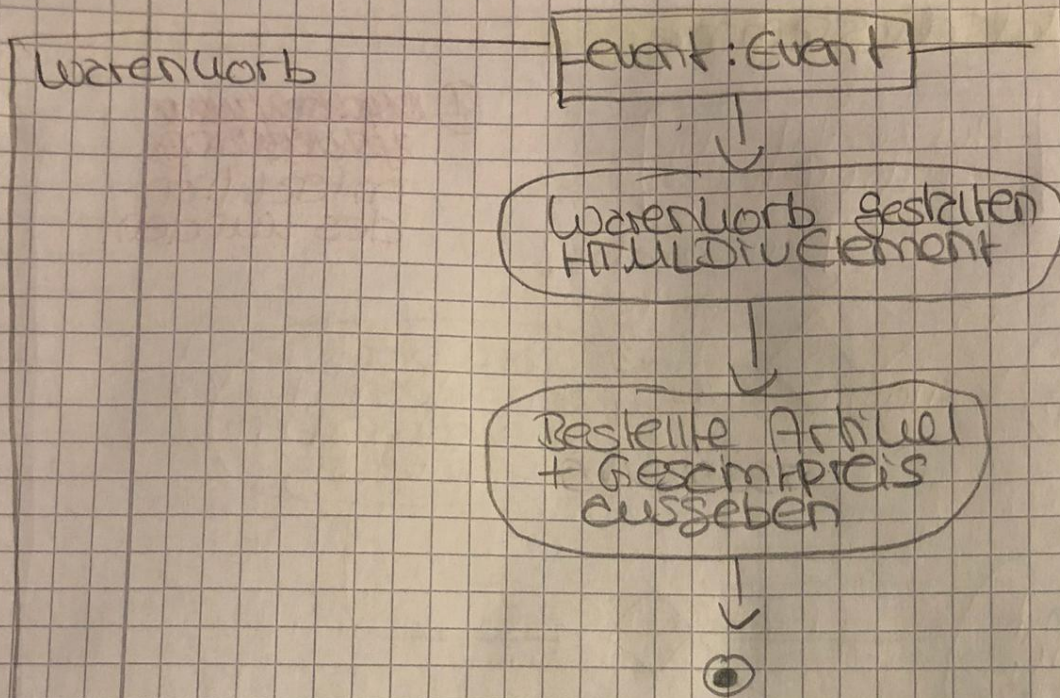 Warenkorb
event: Event
Warenkorb gestalten
HTMLDivElement
Bestellte Artikel
+ Gesamtpreis
ausgeben